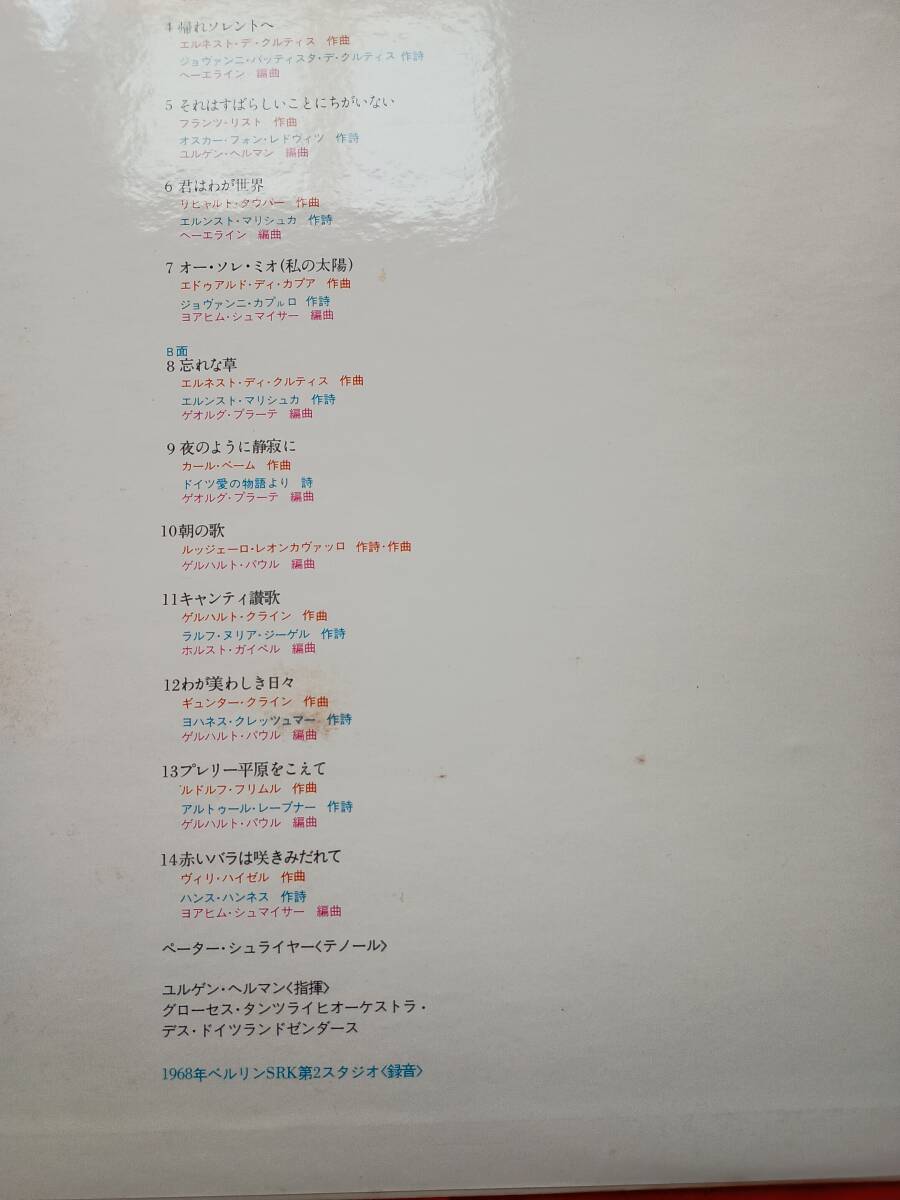 4 帰れソレントへ
エルネスト・デ・クルティス 作曲
ジョヴァンニ・バッティスタ・デ・クルティス 作詩
ヘーエライン 編曲
5 それはすばらしいことにちがいない
フランツ・リスト 作曲
オスカー・フォン・レドヴィツ 作詩
ユルゲン・ヘルマン 編曲
6 君はわが世界
リヒャルト・タウバー 作曲
エルンスト・マリシュカ 作詩
ヘーエライン 編曲
7 オー・ソレ・ミオ(私の太陽)
エドゥアルド・ディ・カプア 作曲
ジョヴァンニ・カプルロ 作詩
ヨアヒム・シュマイサー 編曲
B面
8 忘れな草
エルネスト・ディ・クルティス 作曲
エルンスト・マリシュカ 作詩
ゲオルグ・プラーテ 編曲
9 夜のように静寂に
カール・ベーム 作曲
ドイツ愛の物語より 詩
ゲオルグ・プラーテ 編曲
10 朝の歌
ルッジェーロ・レオンカヴァッロ 作詩・作曲
ゲルハルト・パウル 編曲
11 キャンティ讃歌
ゲルハルト・クライン 作曲
ラルフ・ヌリア・ジーゲル 作詩
ホルスト・ガイペル 編曲
12 わが美わしき日々
ギュンター・クライン 作曲
ヨハネス・クレッツュマー 作詩
ゲルハルト・パウル 編曲
13 プレリー平原をこえて
ルドルフ・フリムル 作曲
アルトゥール・レーブナー 作詩
ゲルハルト・パウル 編曲
14 赤いバラは咲きみだれて
ヴィリ・ハイゼル 作曲
ハンス・ハンネス 作詩
ヨアヒム・シュマイサー 編曲
ペーター・シュライヤー〈テノール〉
ユルゲン・ヘルマン〈指揮〉
グローセス・タンツライヒオーケストラ・
デス・ドイツランドゼンダース
1968年ベルリンSRK第2スタジオ〈録音〉